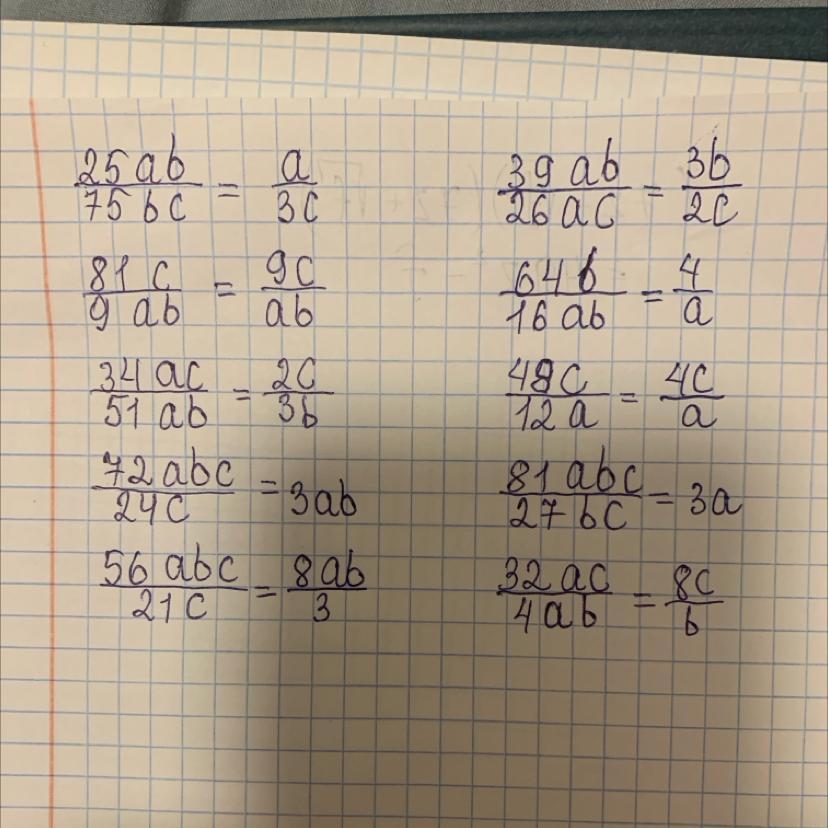 25ab/75bc = a/3c
39ab/26ac = 3b/2c
81c/9ab = 9c/ab
64b/16ab = 4/a
34ac/51ab = 2c/3b
48c/12a = 4c/a
72abc/24c = 3ab
81abc/27bc = 3a
56abc/21c = 8ab/3
32ac/4ab = 8c/b